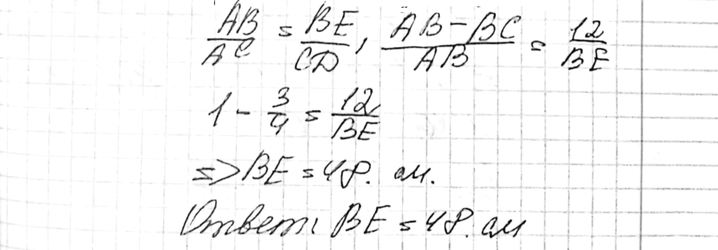 AB/AC = BE/CD, (AB-BC)/AB = 12/BE
1 - 3/4 = 12/BE
=> BE = 48. см.
Ответ: BE = 48. см